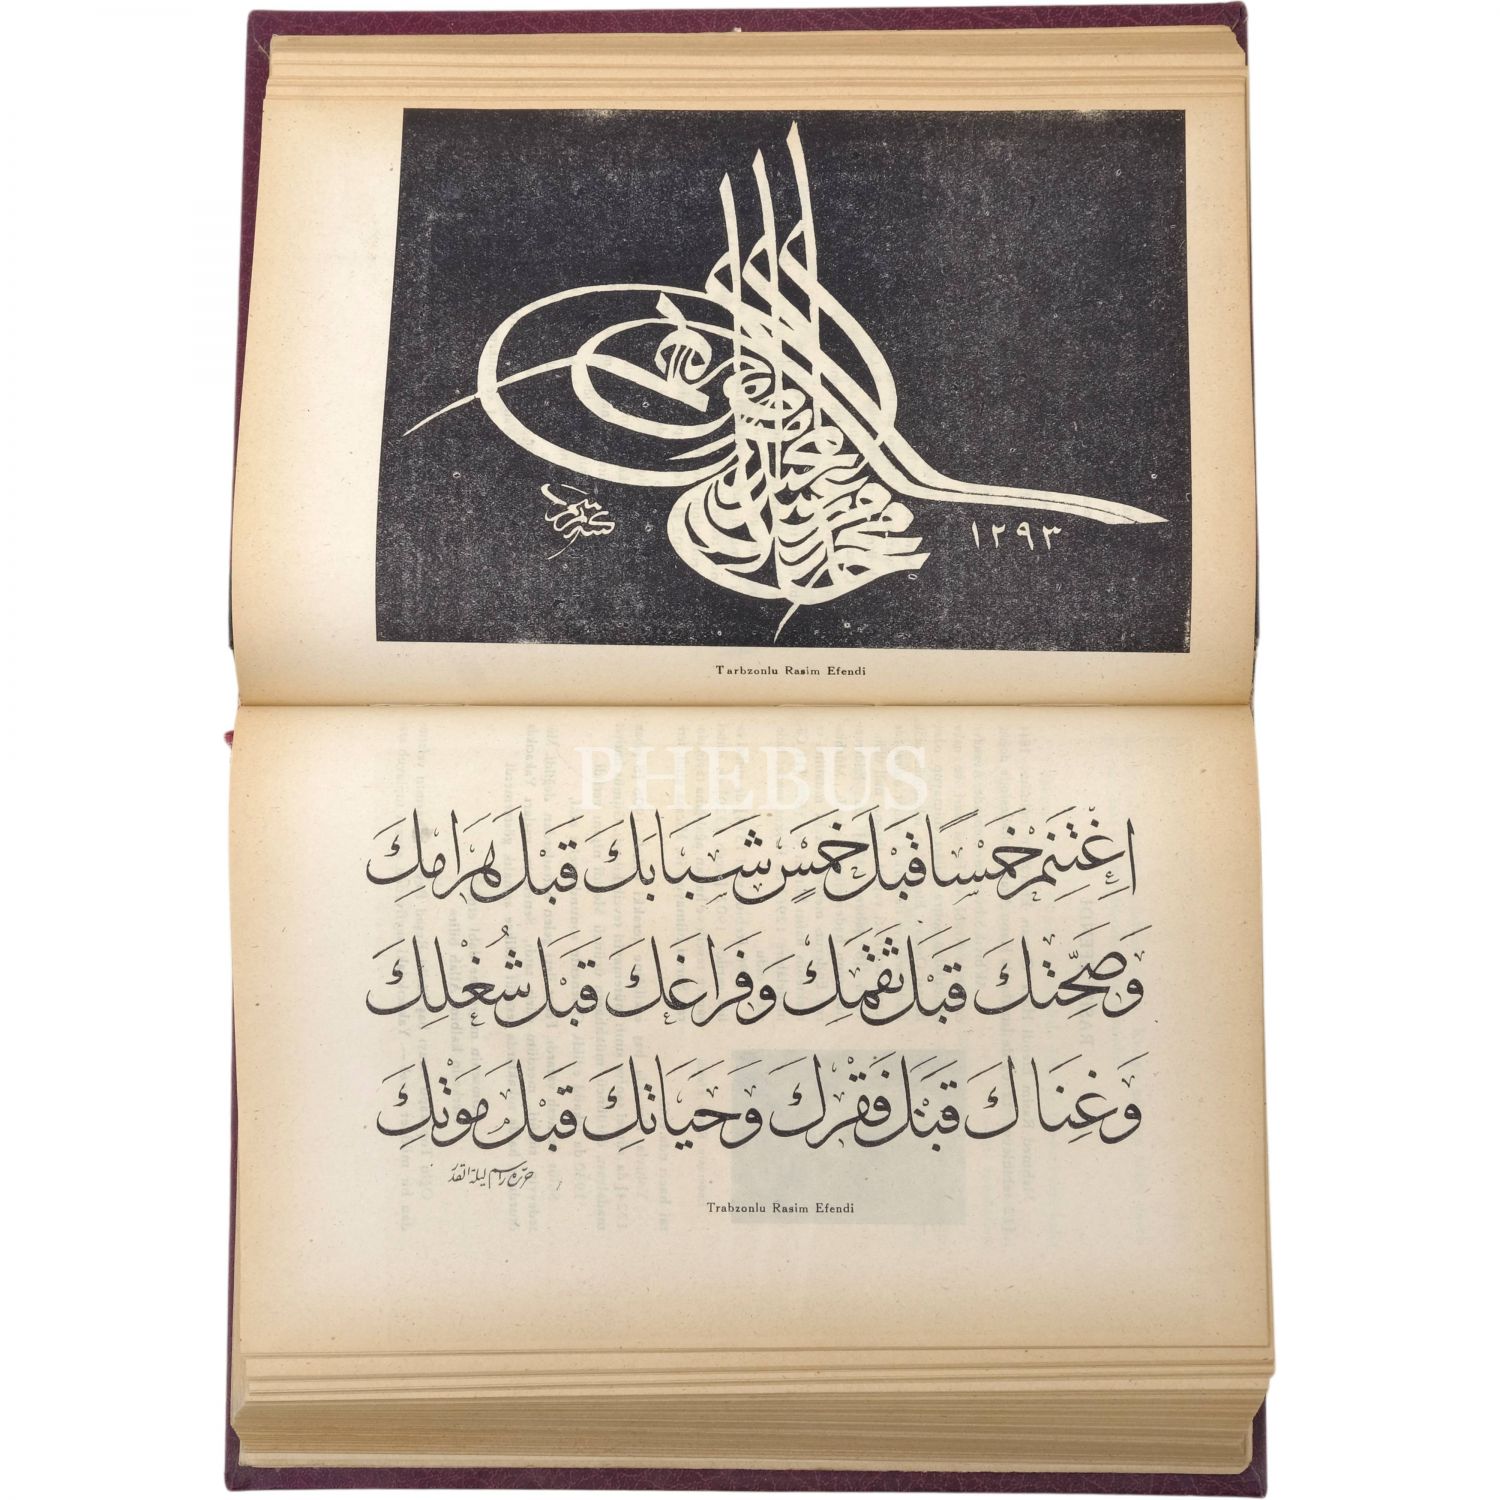 ١٢٩٣
Tarbzonlu Rasim Efendi
PHEBUS
اِغْتَنِمْ خَمْسًا قَبْلَ خَمْسٍ شَبَابَكَ قَبْلَ هَرَامِكَ
وَصِحَّتَكَ قَبْلَ سَقَمِكَ وَفَرَاغَكَ قَبْلَ شُغْلِكَ
وَغِنَاكَ قَبْلَ فَقْرِكَ وَحَيَاتَكَ قَبْلَ مَوْتِكَ
حرّره راسم ليلة القدر
Trabzonlu Rasim Efendi